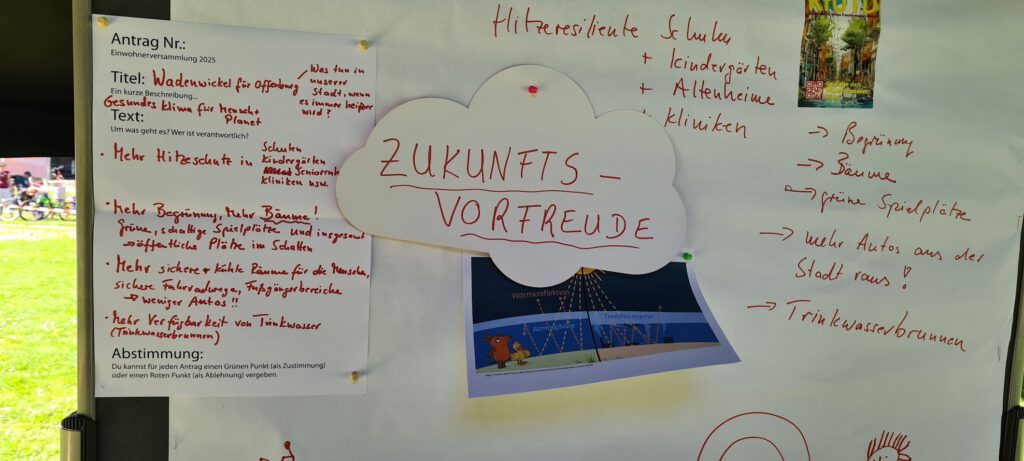 Antrag Nr.:
Einwohnerversammlung 2025
Titel: Wadenwickel für Offenburg
Ein kurze Beschreibung...
Was tun in
unserer
Stadt, wenn
es immer heißer
wird?
Gesundes Klima für Mensch +
Planet
Text:
Um was geht es? Wer ist verantwortlich?
• Mehr Hitzeschutz in Schulen
Kindergärten
Seniorenh
Kliniken usw.
• Mehr Begrünung, Mehr Bäume!
Grüne, schattige Spielplätze und insgesamt
→ öffentliche Plätze im Schatten
• Mehr sichere + kühle Räume für die Menschen,
sichere Fahrradwege, Fußgängerbereiche
→ weniger Autos!!
• Mehr Verfügbarkeit von Trinkwasser
(Trinkwasserbrunnen)
Abstimmung:
Du kannst für jeden Antrag einen Grünen Punkt (als Zustimmung)
oder einen Roten Punkt (als Ablehnung) vergeben.
ZUKUNFTS-
VORFREUDE
Wärmereflektion
Atmosphäre
Treibhausgase
Hitzeresiliente Schulen
+ Kindergärten
+ Altenheime
+ Kliniken
→ Begrünung
→ Bäume
→ grüne Spielplätze
→ mehr Autos aus der
Stadt raus!
→ Trinkwasserbrunnen